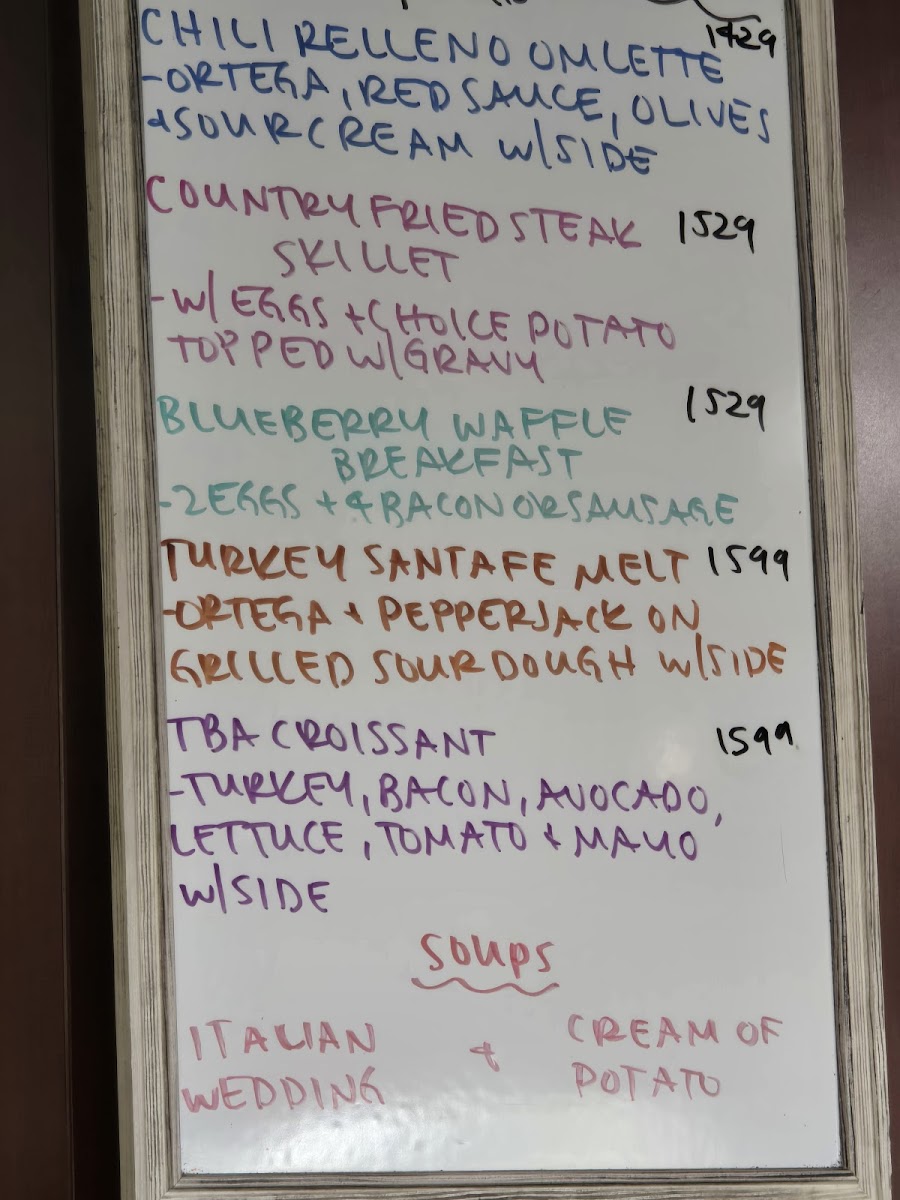 CHILI RELLENO OMLETTE 1429
-ORTEGA, RED SAUCE, OLIVES
+ SOUR CREAM W/SIDE
COUNTRY FRIED STEAK 1529
SKILLET
-W/ EGGS + CHOICE POTATO
TOPPED W/GRAVY
BLUEBERRY WAFFLE 1529
BREAKFAST
-2 EGGS + 4 BACON OR SAUSAGE
TURKEY SANTA FE MELT 1599
-ORTEGA + PEPPERJACK ON
GRILLED SOURDOUGH W/SIDE
TBA CROISSANT 1599
-TURKEY, BACON, AVOCADO,
LETTUCE, TOMATO + MAYO
W/SIDE
SOUPS
ITALIAN + CREAM OF
WEDDING POTATO